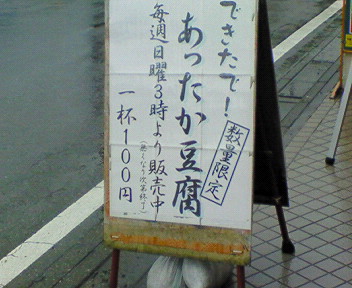 できたで！
あったか豆腐
数量限定
毎週日曜3時より販売中
(無くなり次第終了)
一杯100円